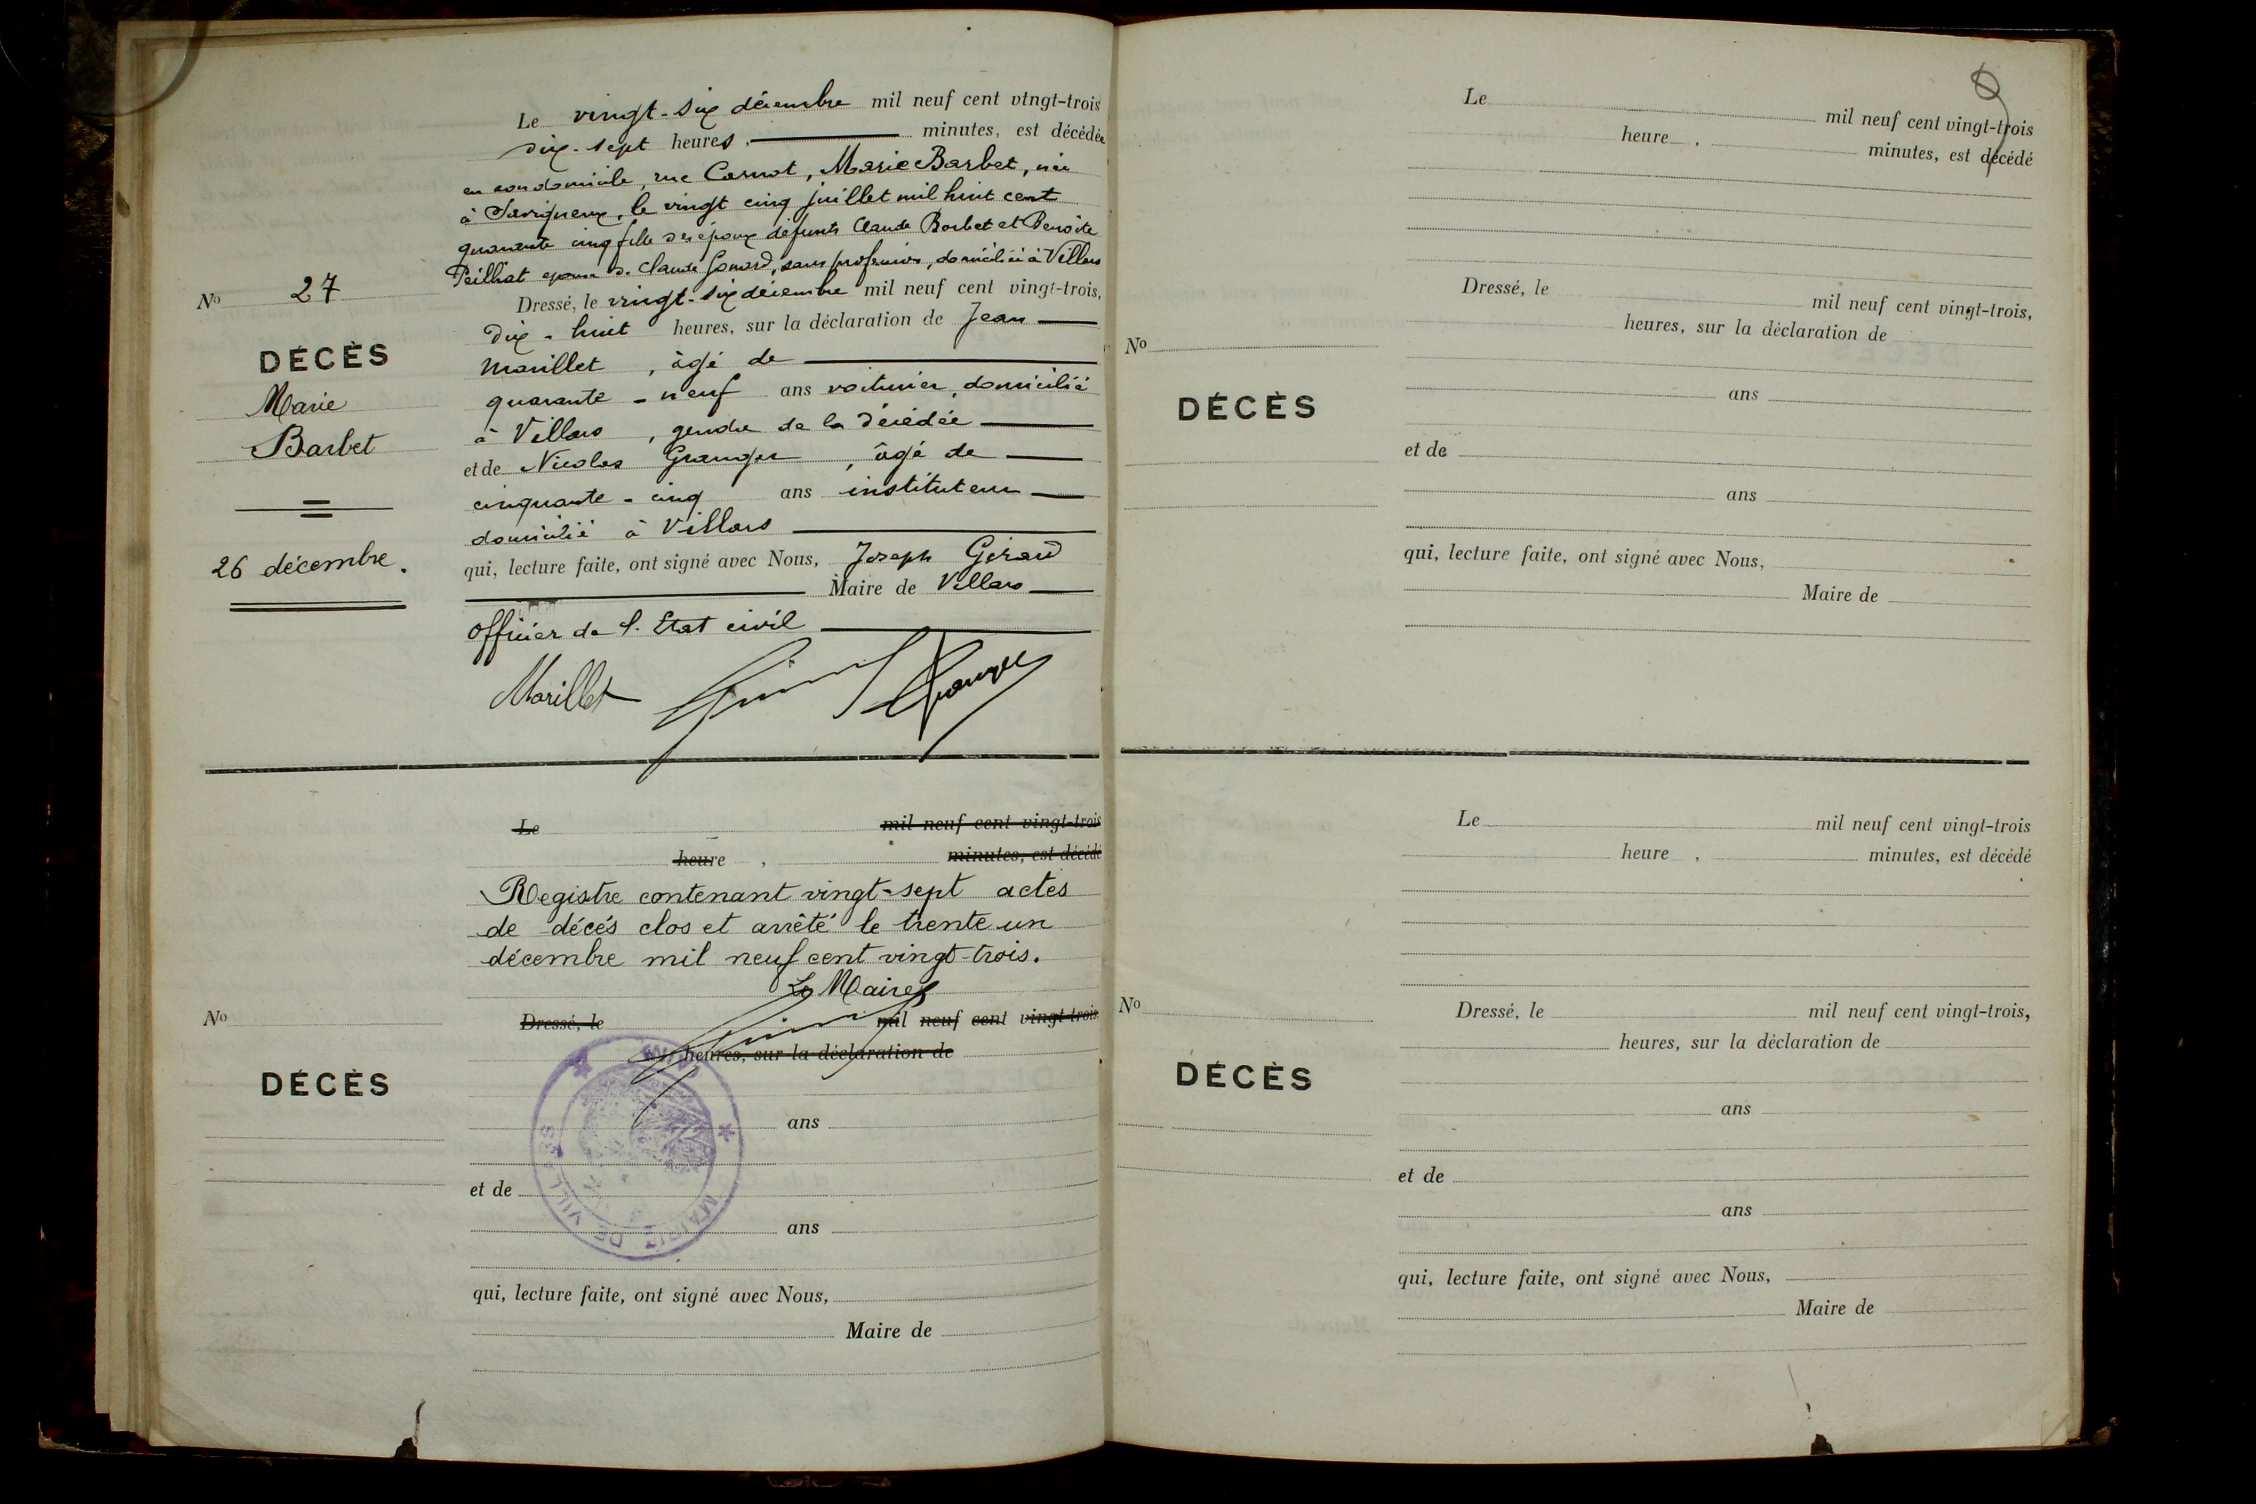 Le vingt-six décembre mil neuf cent vingt-trois
dix-sept heures, minutes, est décédée
en son domicile, rue Carnot, Marie Barbet, née
à Savigneux, le vingt cinq juillet mil huit cent
quarante cinq fille des époux défunts Claude Barbet et Benoîte
Peilhat épouse de Claude Gonord, sans profession, domiciliée à Villars
No 27
Dressé, le vingt-six décembre mil neuf cent vingt-trois,
dix-huit heures, sur la déclaration de Jean
DÉCÈS
Marillet, âgé de
Marie
quarante-neuf ans voiturier, domicilié
Barbet
à Villars, gendre de la décédée
et de Nicolas Granger, âgé de
cinquante-cinq ans instituteur
domicilié à Villars
26 décembre.
qui, lecture faite, ont signé avec Nous, Joseph Girard
Maire de Villars
officier de l'Etat civil
Marillet Granger
Le mil neuf cent vingt-trois
heure, minutes, est décédé
Registre contenant vingt-sept actes
de décés clos et arrêté le trente un
décembre mil neuf cent vingt-trois.
Le Maire
No
Dressé, le mil neuf cent vingt-trois
heures, sur la déclaration de
DÉCÈS
ans
et de
ans
MAIRIE DE VILLARS
qui, lecture faite, ont signé avec Nous,
Maire de
Le mil neuf cent vingt-trois
heure, minutes, est décédé
Dressé, le mil neuf cent vingt-trois,
heures, sur la déclaration de
No
DÉCÈS
ans
et de
ans
qui, lecture faite, ont signé avec Nous,
Maire de
Le mil neuf cent vingt-trois
heure, minutes, est décédé
No
Dressé, le mil neuf cent vingt-trois,
heures, sur la déclaration de
DÉCÈS
ans
et de
ans
qui, lecture faite, ont signé avec Nous,
Maire de